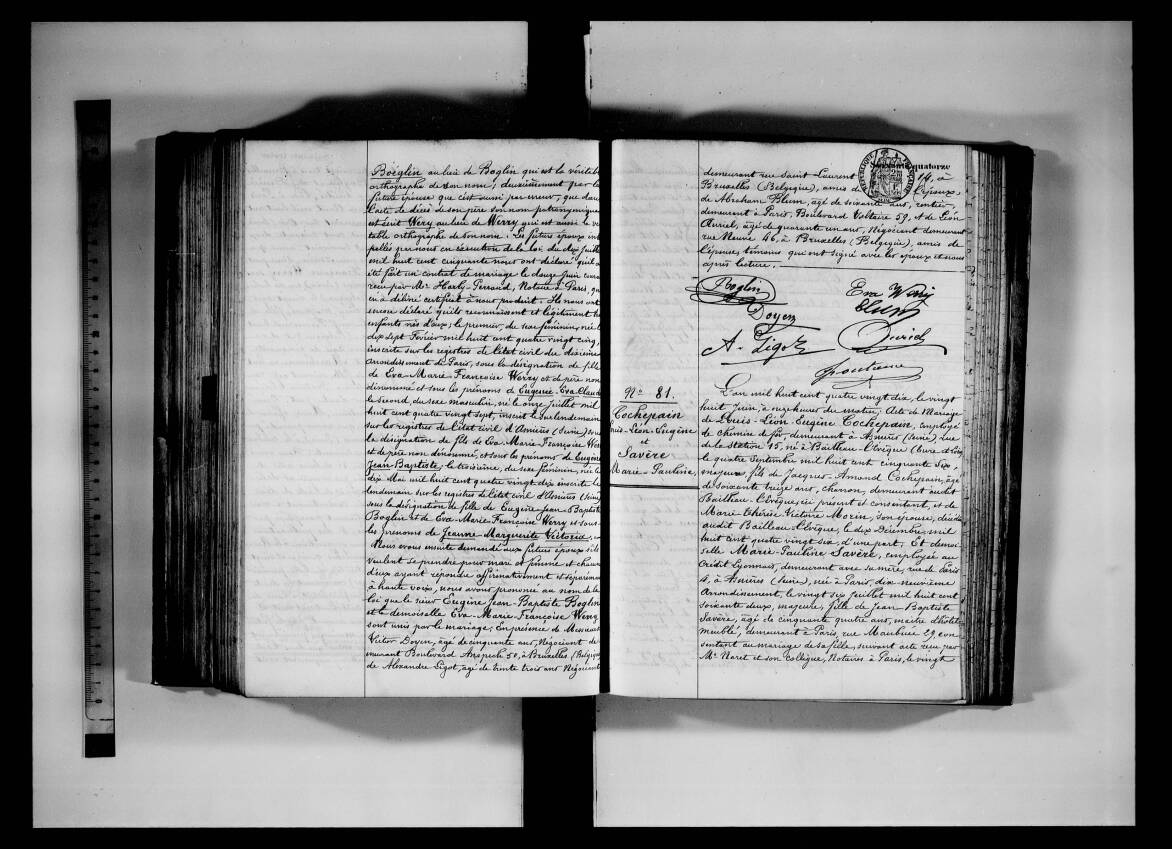 Boëglin au lieu de Boglin qui est la véritable
orthographe de son nom; deuxièmement par la
future épouse que c'est aussi par erreur, que dans
l'acte de décès de son père son nom patronymique
est écrit Wéry au lieu de Werry qui est aussi la véri
table orthographe de son nom. Les futurs époux inter
pellés par nous en exécution de la loi du dix Juillet
mil huit cent cinquante nous ont déclaré qu'il a
été fait un contrat de mariage le douze Juin courant
reçu par Me Harly-Perraud, Notaire à Paris, qui
en a délivré certificat à nous produit. Ils nous ont
encore déclaré qu'ils reconnaissent et légitiment trois
enfants nés d'eux: le premier, du sexe féminin, né le
dix sept Février mil huit cent quatre vingt cinq,
inscrite sur les registres de l'état civil du dixième
arrondissement de Paris, sous la désignation de fille
de Eva-Marie-Françoise Werry et de père non
dénommé et sous les prénoms de Eugénie-Eva-Claude
le second, du sexe masculin, né le onze Juillet mil
huit cent quatre vingt sept, inscrit le surlendemain
sur les registres de l'état civil d'Asnières (Seine) sous
la désignation de fils de Eva-Marie-Françoise Werry
et de père non dénommé, et sous les prénoms de Eugène
Jean-Baptiste; le troisième, du sexe féminin, née le
dix Mai mil huit cent quatre vingt-dix inscrite le
lendemain sur les registres de l'état civil d'Asnières (Seine)
sous la désignation de fille de Eugène-Jean-Baptiste
Boglin et de Eva-Marie-Françoise Werry et sous
les prénoms de Jeanne-Marguerite Victoria.
Nous avons ensuite demandé aux futurs époux s'ils
veulent se prendre pour mari et femme et chacun
d'eux ayant répondu affirmativement et séparément
à haute voix, nous avons prononcé au nom de la
loi que le sieur Eugène Jean-Baptiste Boglin
et la demoiselle Eva-Marie-Françoise Werry
sont unis par le mariage; En présence de Messieurs
Victor Doyen, âgé de cinquante ans, Négociant de-
meurant Boulevard Anspach 50, à Bruxelles (Belgique)
de Alexandre Ligot, âgé de trente trois ans Négociant
quatorze
demeurant rue Saint Laurent 14, à
Bruxelles (Belgique), amis de l'époux,
de Abraham Blum, âgé de soixante ans, rentier,
demeurant à Paris, Boulevard Voltaire 59, et de Léon
âgé de quarante un ans, Négociant demeurant
rue Neuve 46, à Bruxelles (Belgique), amis de
l'épouse, témoins qui ont signé avec les époux et nous
après lecture.
Boglin
Eva Werry
Doyen
Blum
A. Ligot
No 81.
Cochepain
Louis-Léon-Eugène
et
Savère
Marie-Pauline
L'an mil huit cent quatre vingt dix, le vingt
huit Juin, à neuf heures du matin; Acte de Mariage
de Louis-Léon-Eugène Cochepain, employé
de chemin de fer, demeurant à Asnières (Seine) rue
de la Station 15, né à Bailleau-l'Evêque (Eure et Loir)
le quatre Septembre mil huit cent cinquante six,
majeur, fils de Jacques-Amand Cochepain, âgé
de soixante treize ans, charron, demeurant audit
Bailleau-l'Evêque, ici présent et consentant, et de
Marie Thérèse Victoire Morin, son épouse, décédée
audit Bailleau-l'Evêque, le dix Décembre mil
huit cent quatre vingt six, d'une part; Et demoi
selle Marie-Pauline Savère, employée au
Crédit Lyonnais, demeurant avec sa mère, rue de Paris
4, à Asnières (Seine), née à Paris, dix neuvième
Arrondissement, le vingt six Juillet mil huit cent
soixante deux, majeure, fille de Jean-Baptiste
Savère, âgé de cinquante quatre ans, maître d'hôtel
meublé, demeurant à Paris, rue Maubuée 29, con
sentant au mariage de sa fille, suivant acte reçu par
Me Naret et son collègue, Notaires à Paris, le vingt